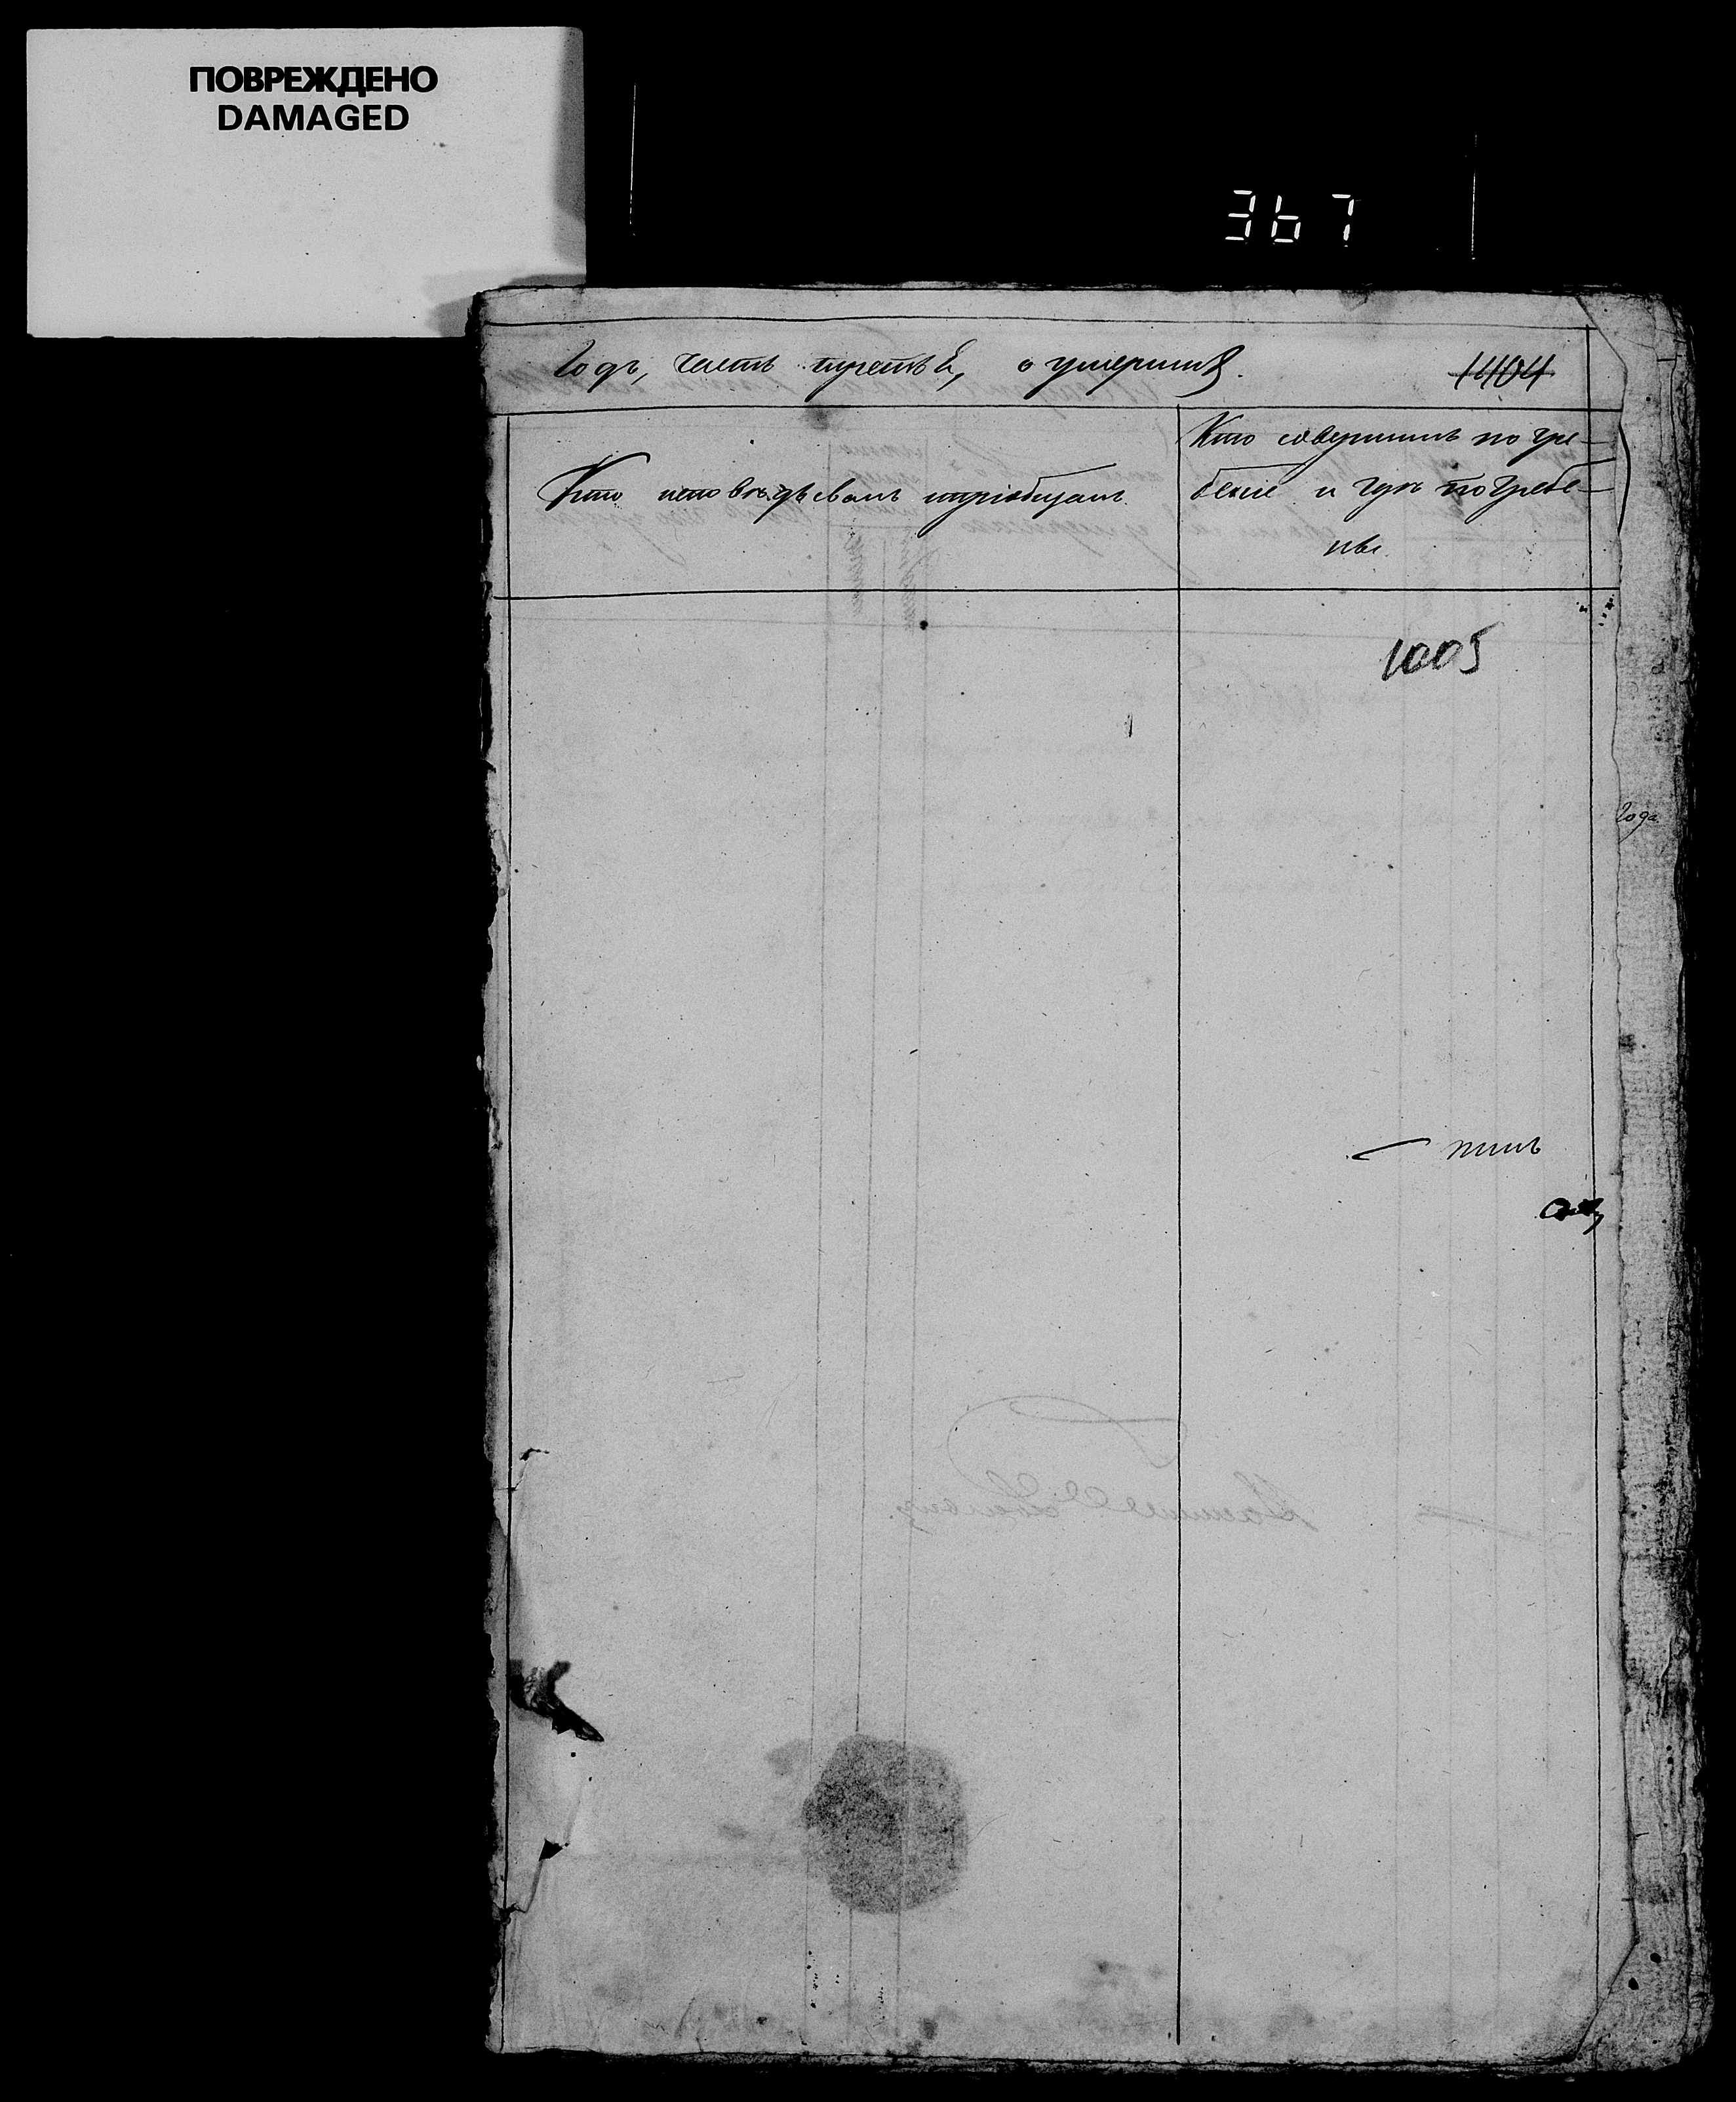 ПОВРЕЖДЕНО
DAMAGED
367
Годъ, часть третья, о умершихъ.
Кто исповѣдывалъ и пріобщалъ
Кто совершилъ погре-
беніе и гдѣ погребе-
ны.
1005
года